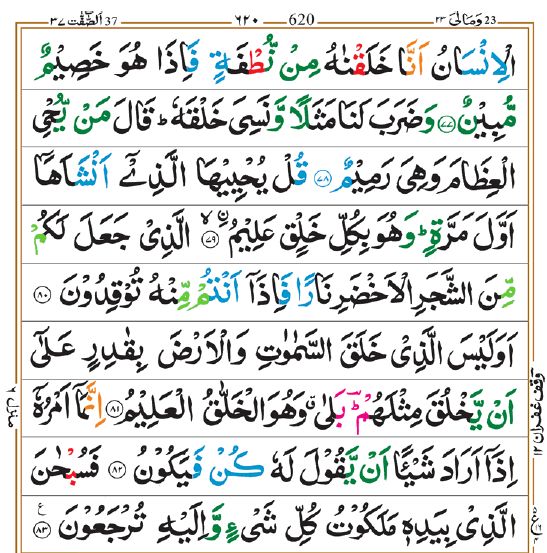 اَلصّٰفّٰت ٣٧ 37 ٦٢٠ 620 وَمَالِىَ ٢٣ 23
الْاِنْسَانُ اَنَّا خَلَقْنٰهُ مِنْ نُّطْفَةٍ فَاِذَا هُوَ خَصِيْمٌ
مُّبِيْنٌ ٧٧ وَضَرَبَ لَنَا مَثَلًا وَّنَسِىَ خَلْقَهٗ ؕ قَالَ مَنْ يُّحْىِ
الْعِظَامَ وَهِىَ رَمِيْمٌ ٧٨ قُلْ يُحْيِيْهَا الَّذِىْۤ اَنْشَاَهَاۤ
اَوَّلَ مَرَّةٍ ؕ وَهُوَ بِكُلِّ خَلْقٍ عَلِيْمٌ ۙ ٧٩ الَّذِىْ جَعَلَ لَكُمْ
مِّنَ الشَّجَرِ الْاَخْضَرِ نَارًا فَاِذَاۤ اَنْتُمْ مِّنْهُ تُوْقِدُوْنَ ٨٠
اَوَلَيْسَ الَّذِىْ خَلَقَ السَّمٰوٰتِ وَالْاَرْضَ بِقٰدِرٍ عَلٰٓى
اَنْ يَّخْلُقَ مِثْلَهُمْ ؕ بَلٰى وَهُوَ الْخَلّٰقُ الْعَلِيْمُ ٨١ اِنَّمَاۤ اَمْرُهٗۤ
اِذَاۤ اَرَادَ شَيْـًٔا اَنْ يَّقُوْلَ لَهٗ كُنْ فَيَكُوْنُ ٨٢ فَسُبْحٰنَ
الَّذِىْ بِيَدِهٖ مَلَكُوْتُ كُلِّ شَىْءٍ وَّاِلَيْهِ تُرْجَعُوْنَ ٨٣
وقف غفران ١٢
منزل ٦